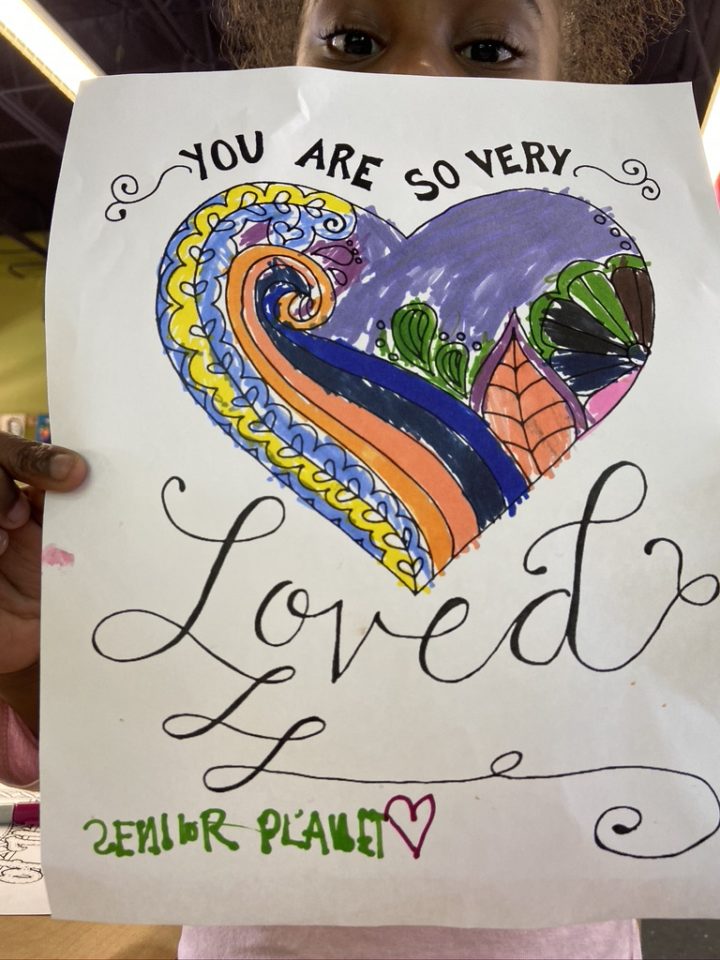 YOU ARE SO VERY
Loved
SENIOR PLANET